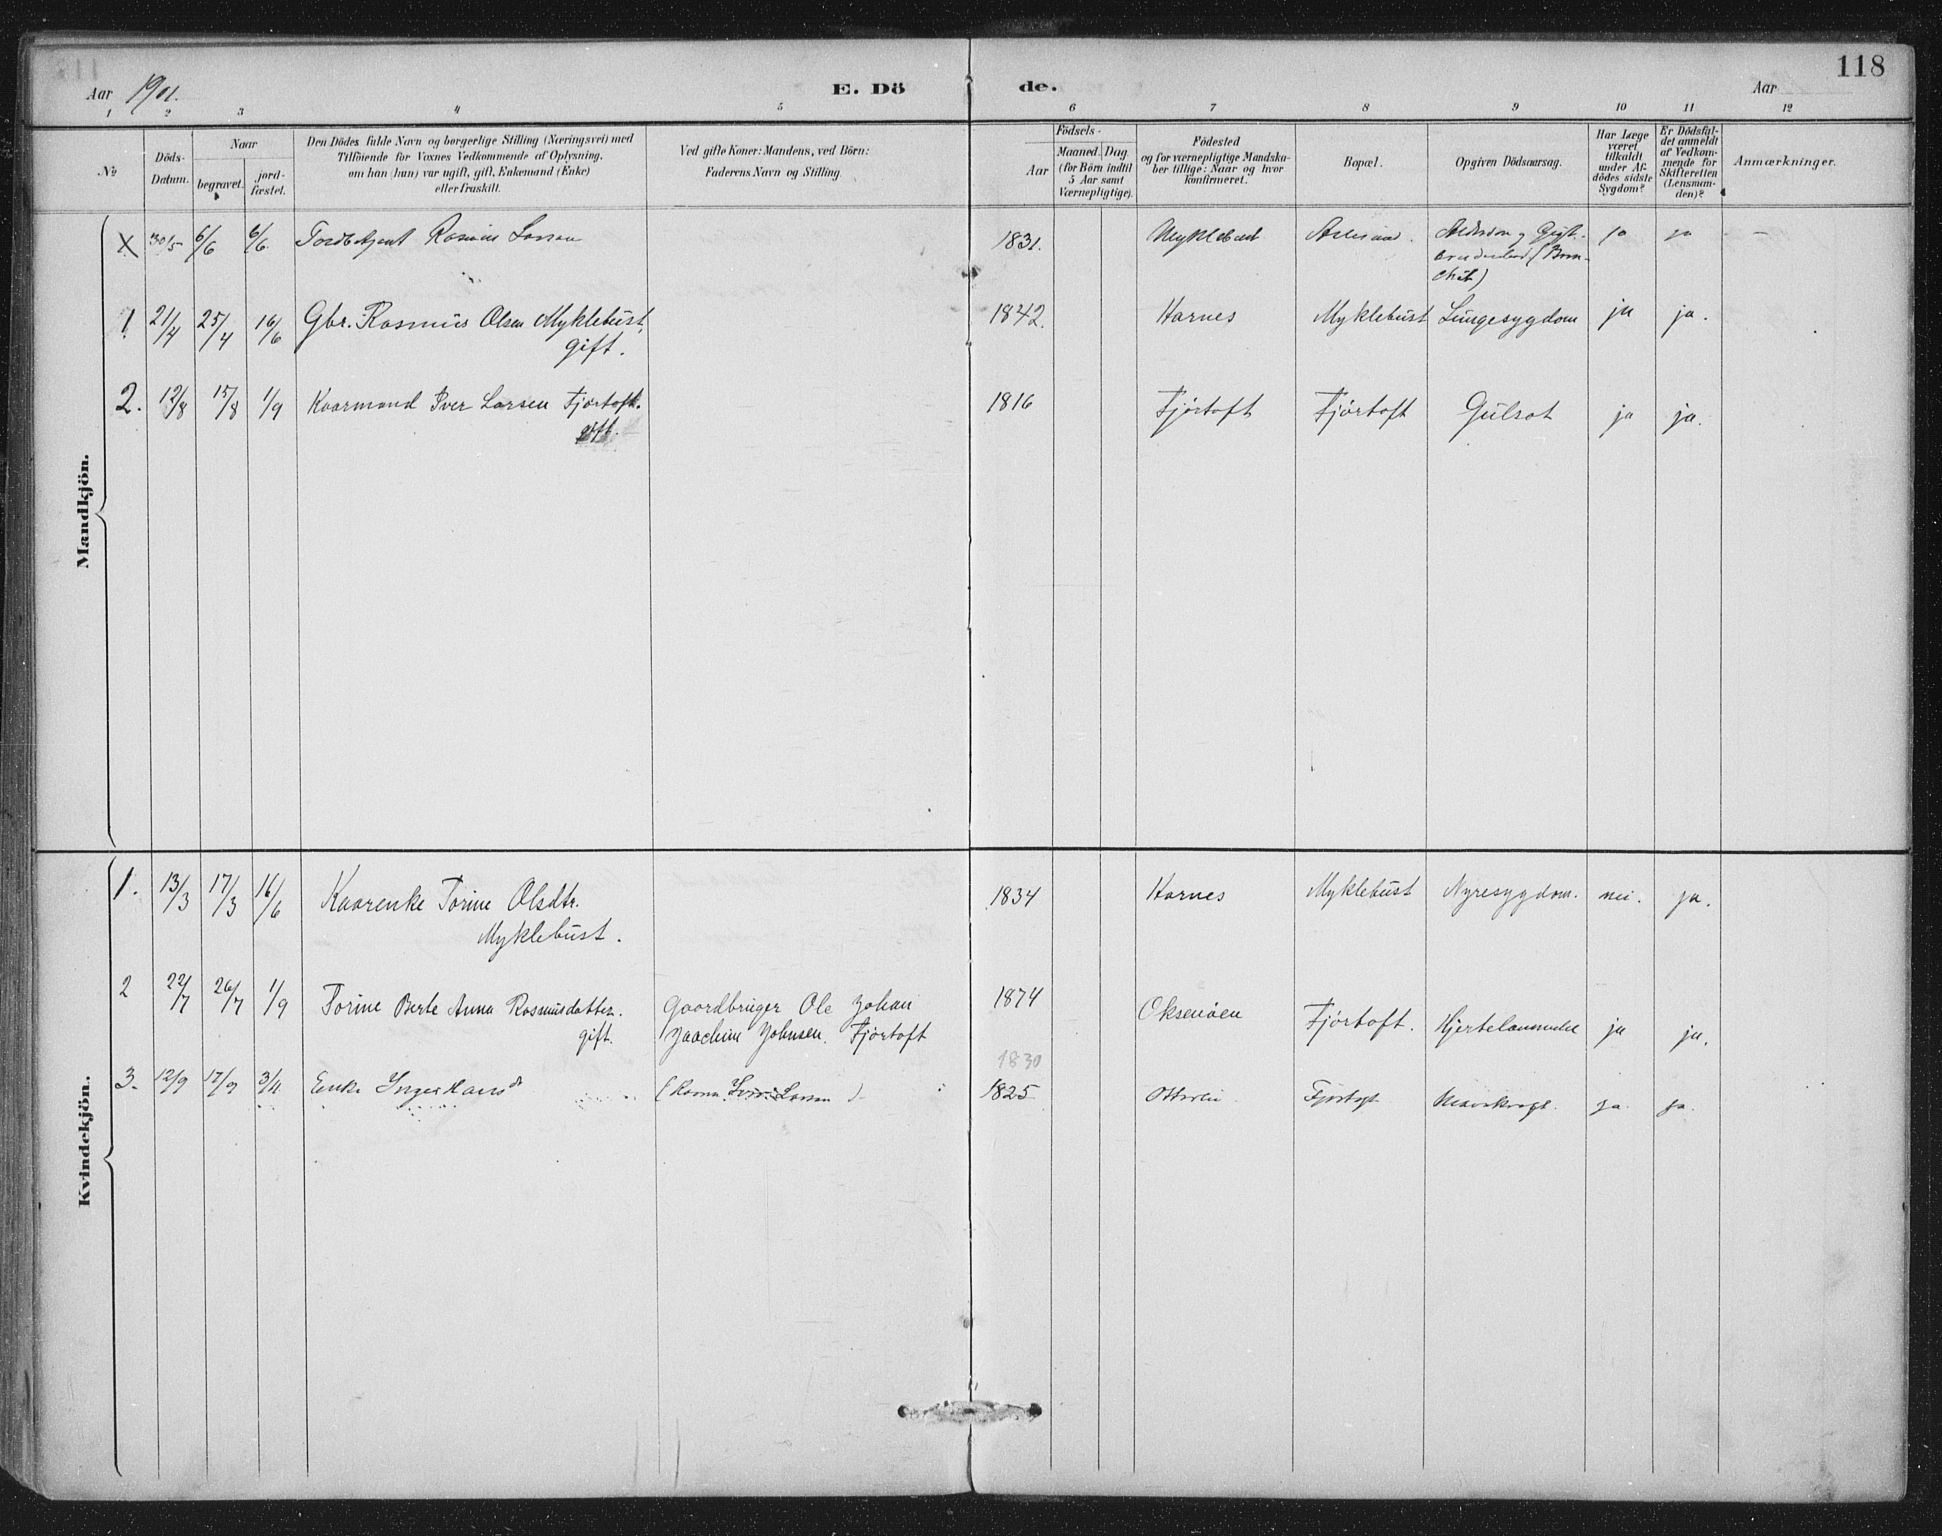 118
Aar 1901. E. Dö de. Aar
1 2 3 4 5 6 7 8 9 10 11 12
No
Döds-
Datum.
Naar
begravet.
jord-
fæstet.
Den Dödes fulde Navn og borgerlige Stilling (Næringsvei) med
Tilföiende for Voxnes Vedkommende af Oplysning,
om han (hun) var ugift, gift, Enkemand (Enke)
eller fraskilt.
Ved gifte Koner: Mandens, ved Börn:
Faderens Navn og Stilling.
Födsels-
Aar
Maaned. Dag.
(for Börn indtil
5 Aar samt
Værnepligtige).
Födested
og for værnepligtige Mandska-
ber tillige: Naar og hvor
konfirmeret.
Bopæl.
Opgiven Dödsaarsag.
Har Læge
været
tilkaldt
under Af-
dödes sidste
Sygdom?
Er Dödsfal-
det anmeldt
af Vedkom-
mende for
Skifteretten
(Lensman-
den)?
Anmærkninger.
Mandkjön.
X 30/5 6/6 6/6 Rasmus Larsen 1831. Myklebust Aalesund. ja ja —
1 21/4 25/4 16/6 Gbr. Rasmus Olsen Myklebust, 1842. Harnes Myklebust Lungesygdom ja ja.
gift.
2. 12/8 15/8 1/9 Kaarmand Iver Larsen Fjørtoft. 1816 Fjørtoft Fjørtoft Gulsot ja ja.
gift.
Kvindekjön.
1. 13/3 17/3 16/6 Kaarenke Torine Olsdtr. 1834 Harnes Myklebust Nyresygdom. nei. ja.
Myklebust.
2 22/7 26/7 1/9 Torine Berte Anna Rasmusdatter. Gaardbruger Ole Johan 1874 Oksenøen Fjørtoft. ja ja.
gift. Joachim Johnsen Fjørtoft
1830
3. 12/9 17/9 3/11 Enke Inger Hansd (Kaarm. Iver Larsen) 1825 Fjørtoft ja. ja.